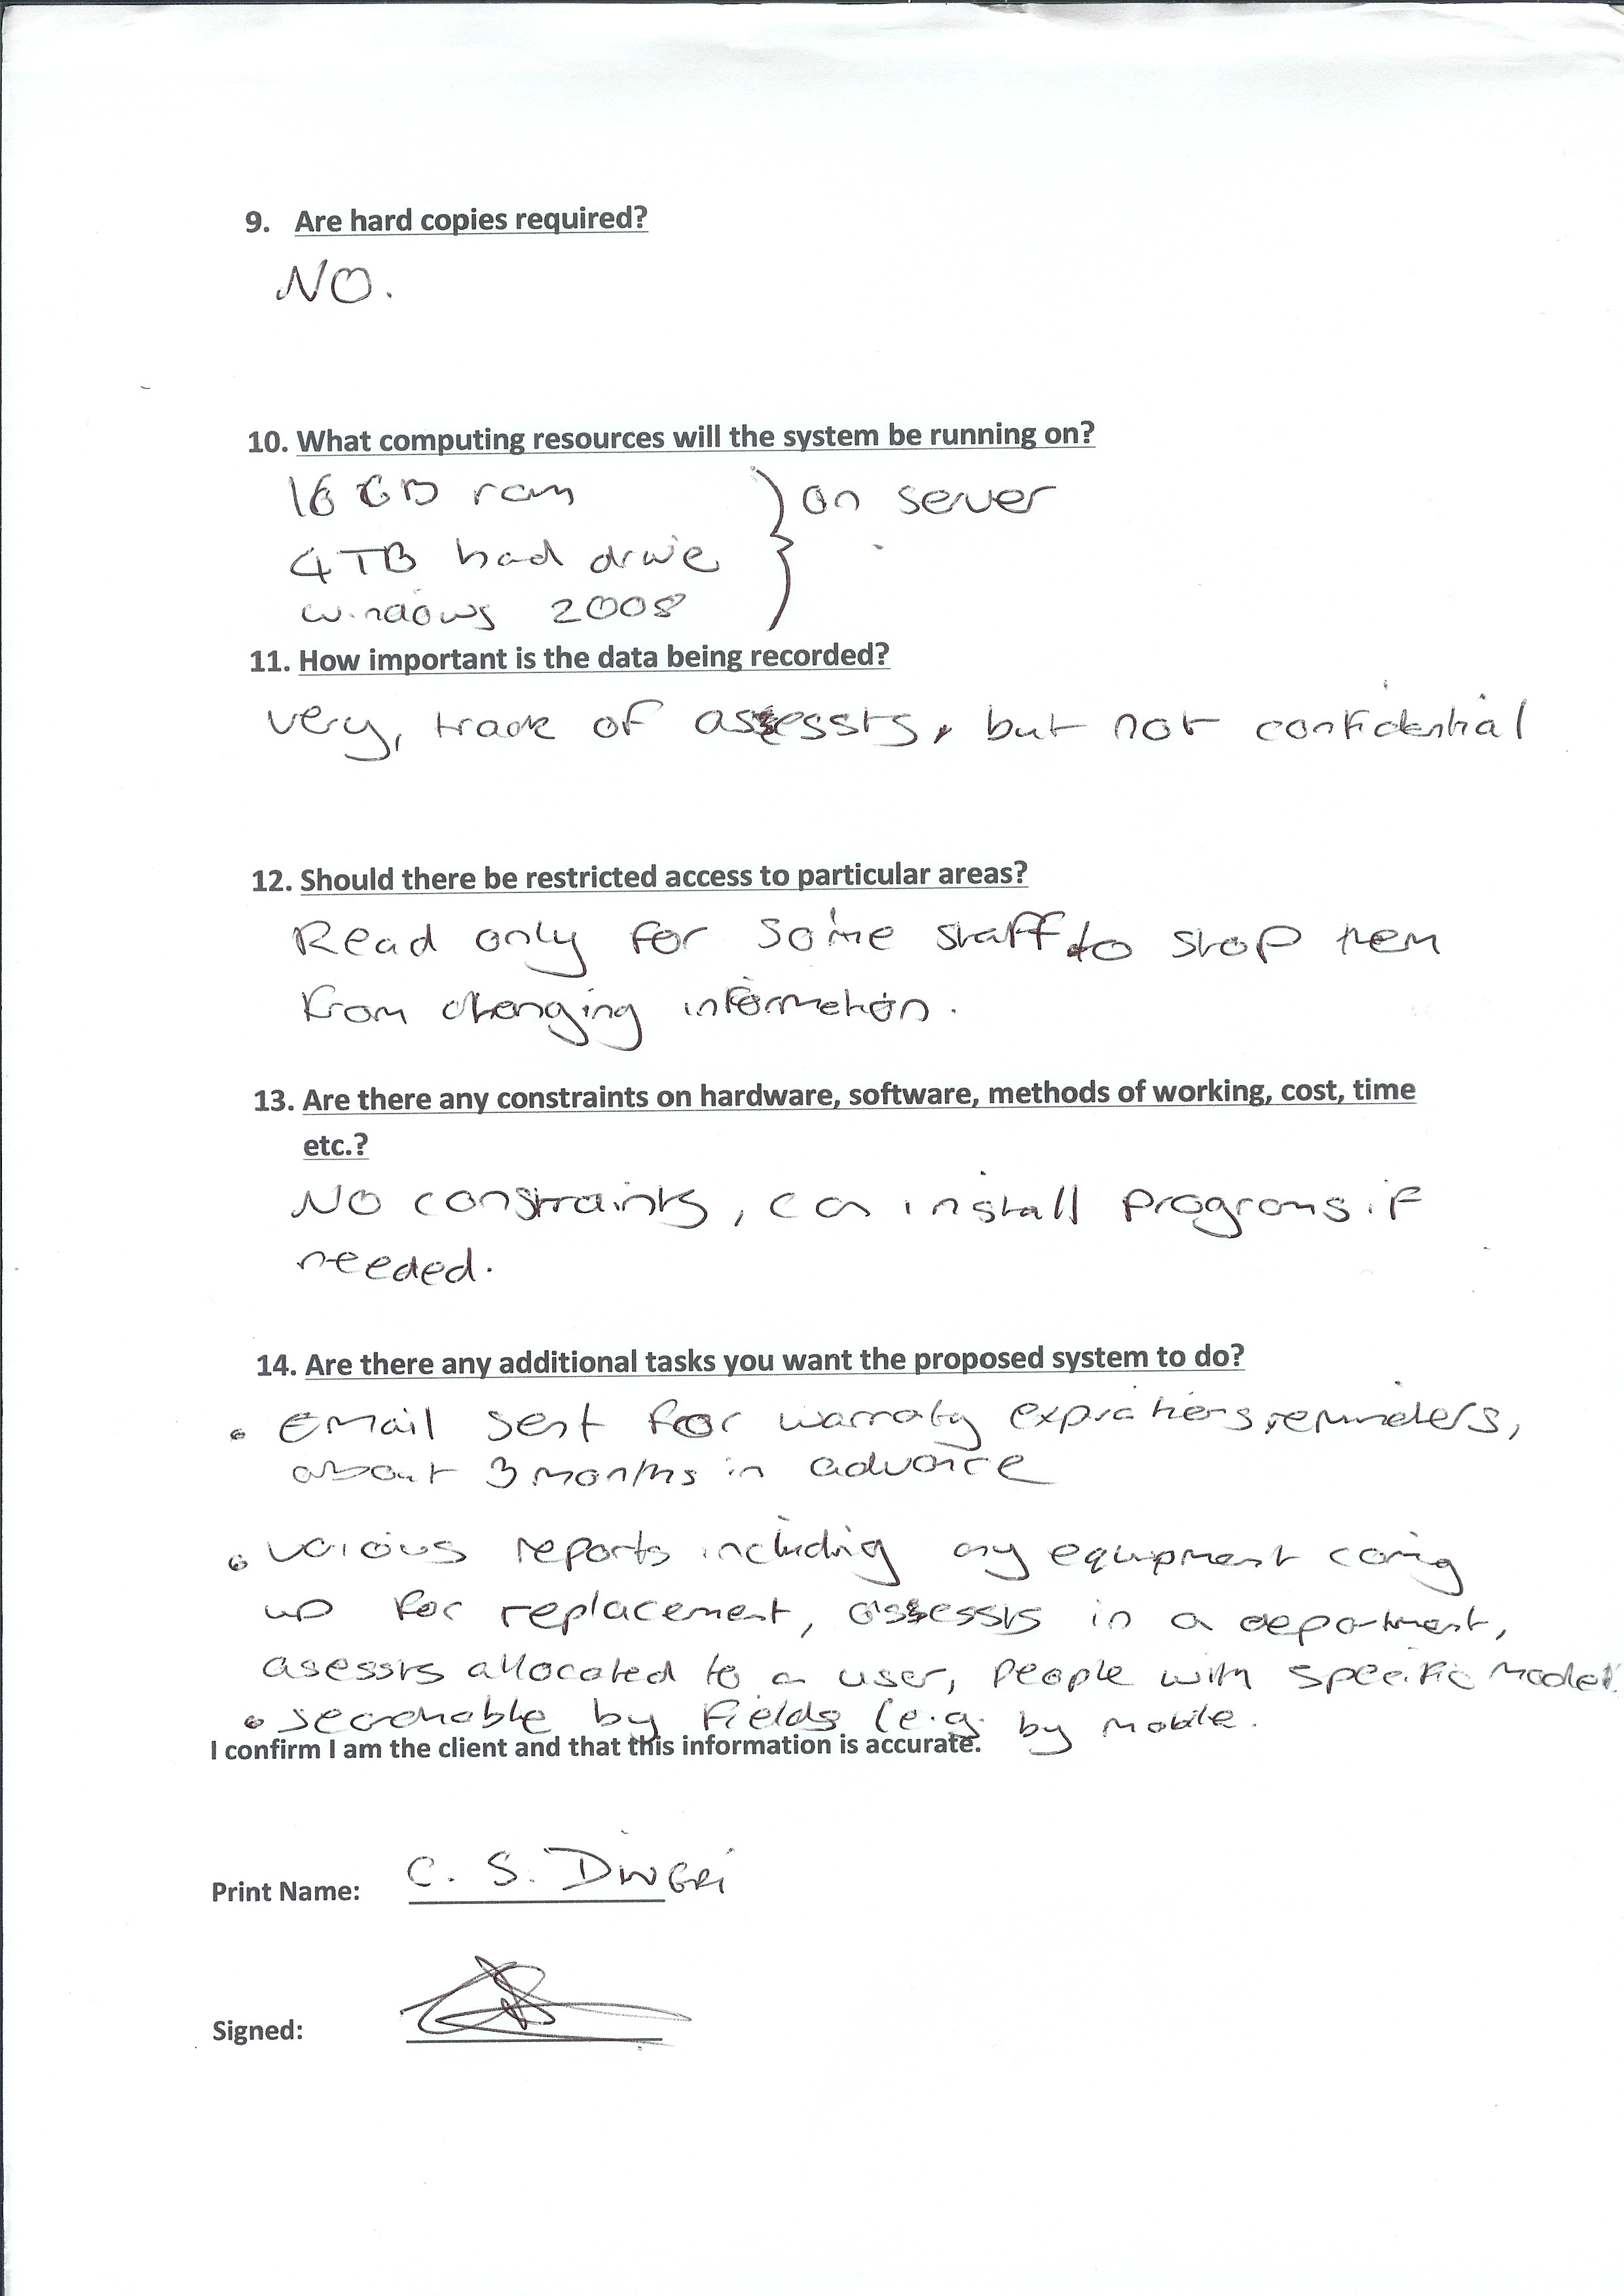 9. Are hard copies required?
NO.
10. What computing resources will the system be running on?
16 GB ram } on server
4TB hard drive
windows 2008
11. How important is the data being recorded?
very, track of assessts, but not confidential
12. Should there be restricted access to particular areas?
Read only for some staff to stop them
from changing information.
13. Are there any constraints on hardware, software, methods of working, cost, time
etc.?
No constraints, can install programs if
needed.
14. Are there any additional tasks you want the proposed system to do?
• Email sent for warranty expirations reminders,
about 3 months in advance
• various reports including any equipment coming
up for replacement, assessts in a department,
asessts allocated to a user, people with specific model.
• searchable by fields (e.g. by mobile.
I confirm I am the client and that this information is accurate.
Print Name: C. S.
Signed: